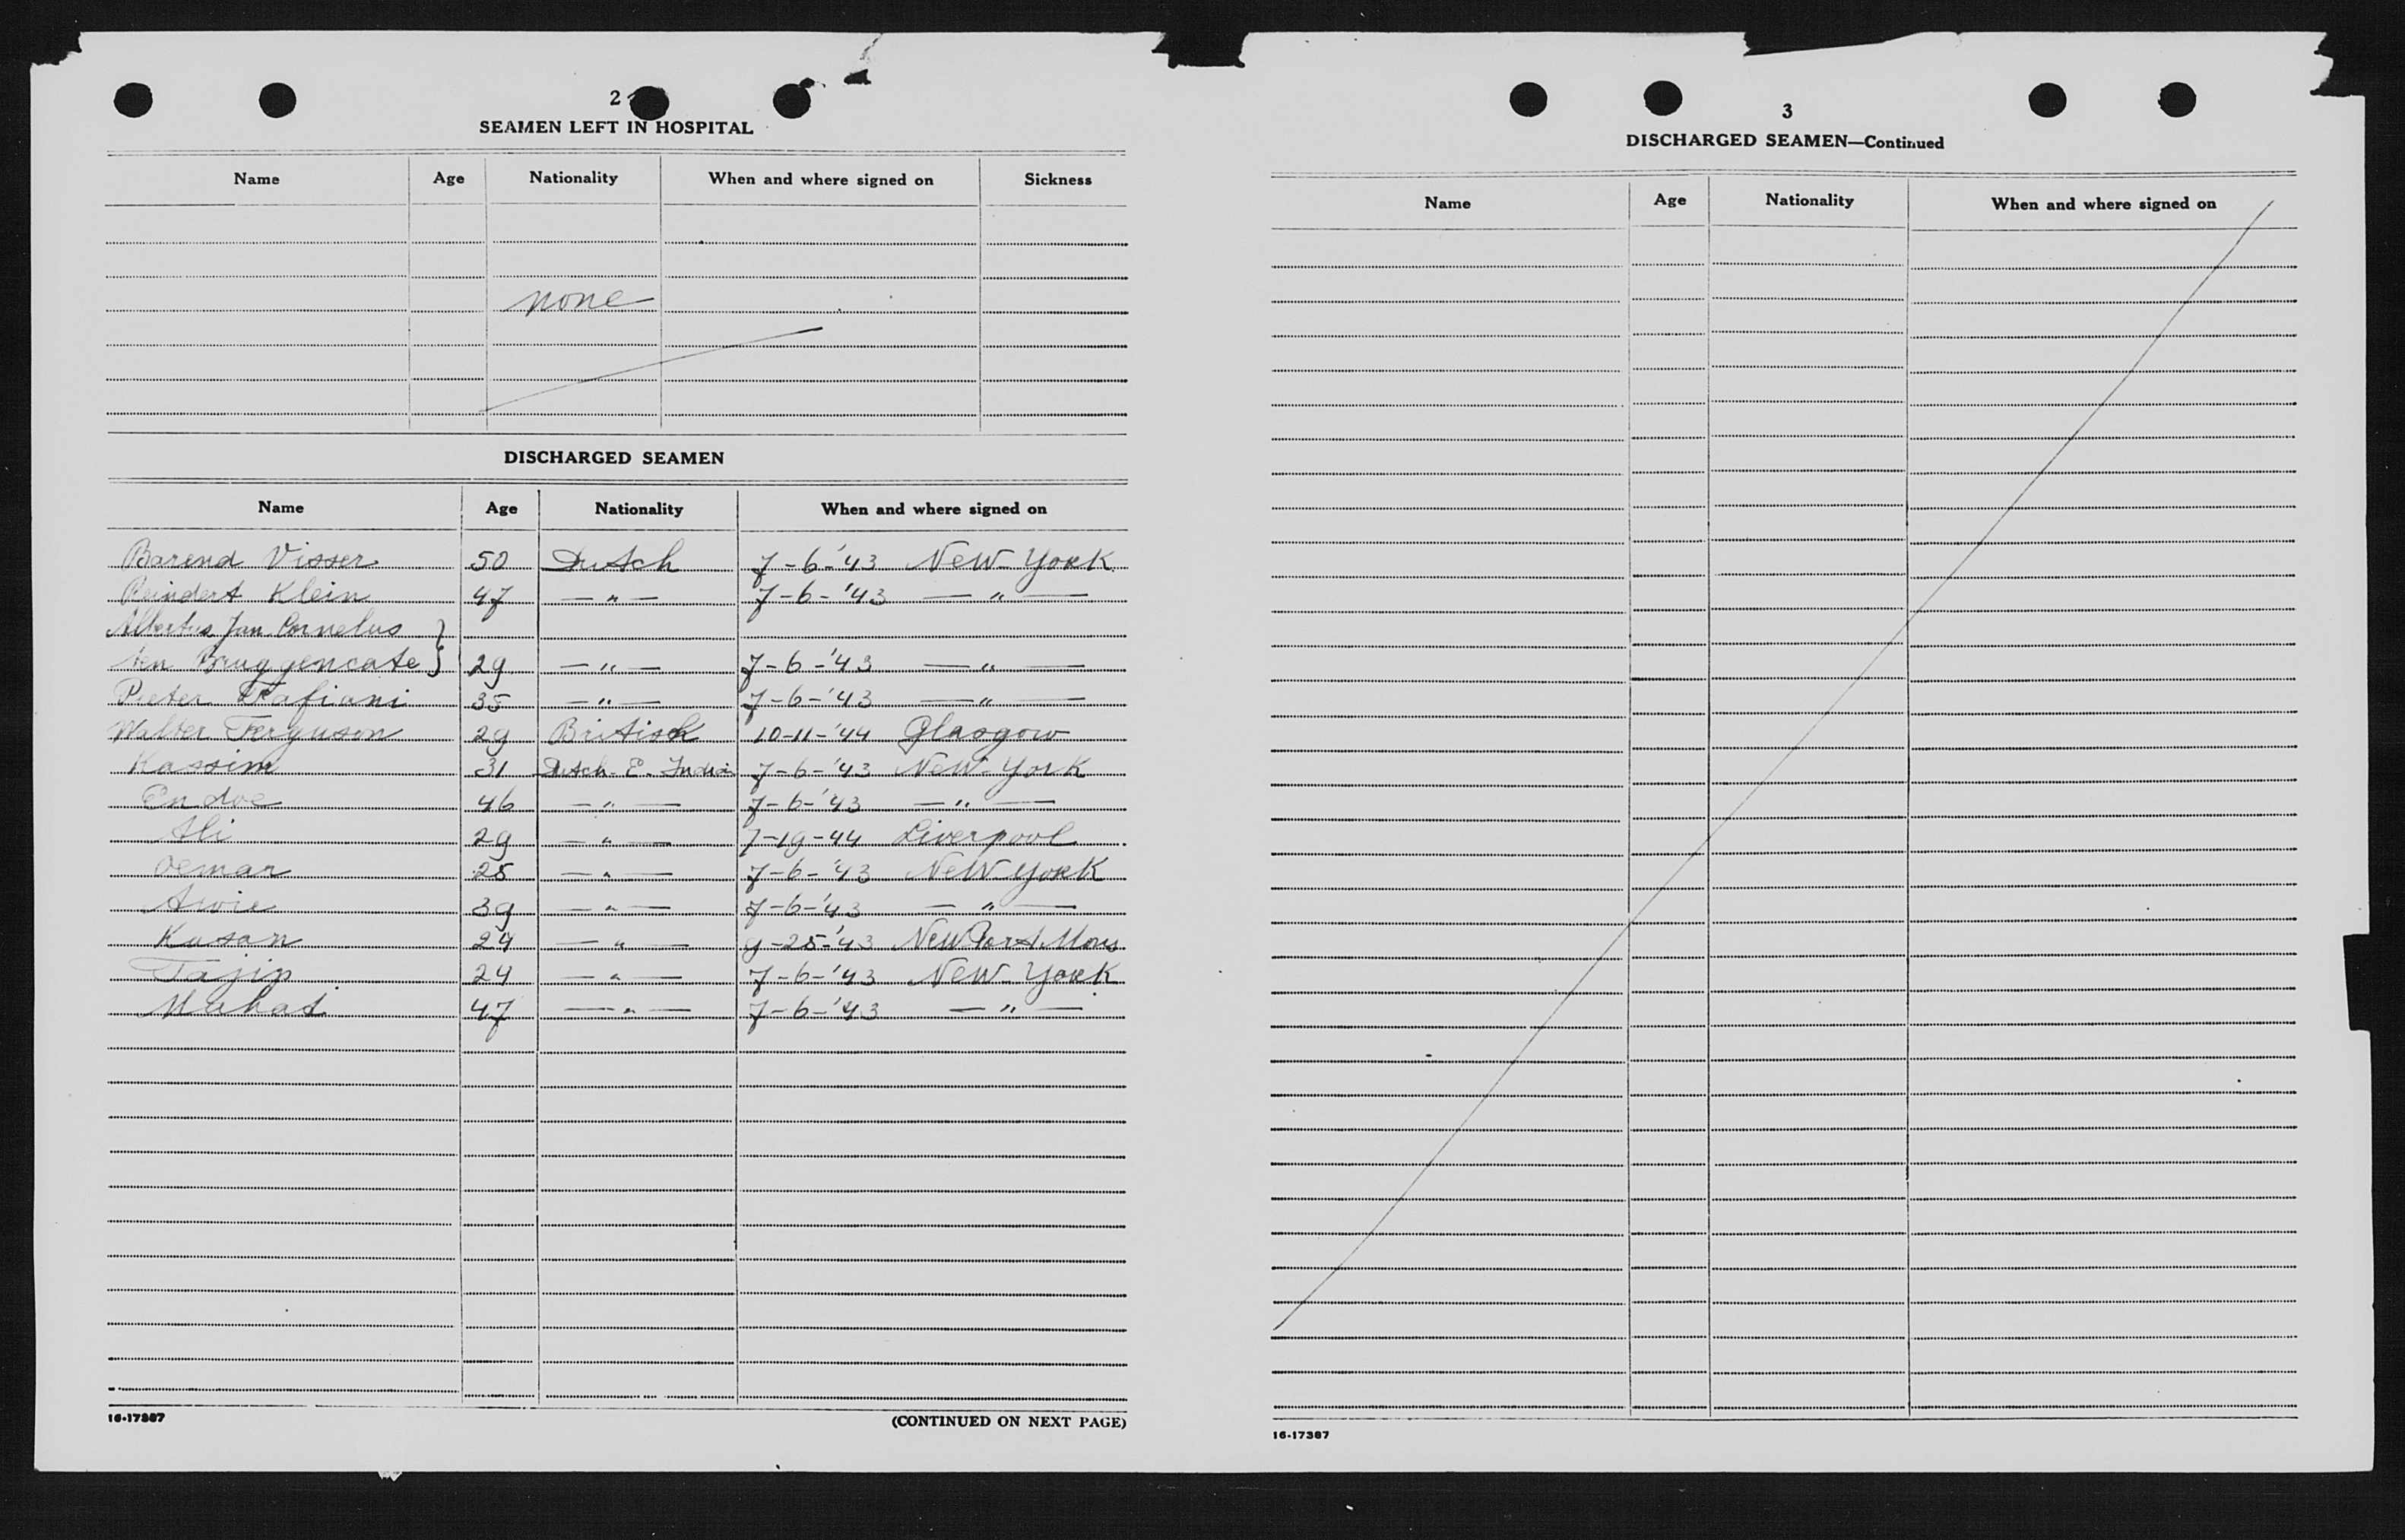 2
SEAMEN LEFT IN HOSPITAL
Name Age Nationality When and where signed on Sickness
none
DISCHARGED SEAMEN
Name Age Nationality When and where signed on
Barend Visser 50 Dutch 7-6-'43 New York
Reindert Klein 47 — " — 7-6-'43 — " —
Albertus Jan Cornelus
ten Bruggencate } 29 — " — 7-6-'43 — " —
Pieter 35 — " — 7-6-'43 — " —
Walter Ferguson 29 British 10-11-'44 Glasgow
Kassim 31 Dutch E. India 7-6-'43 New York
Endoe 46 — " — 7-6-'43 — " —
Ali 29 — " — 7-19-44 Liverpool
Oemar 25 — " — 7-6-'43 New York
39 — " — 7-6-'43 — " —
Kasan 24 — " — 9-25-'43 NewPort Mons
Tajip 24 — " — 7-6-'43 New York
47 — " — 7-6-'43 — " —
16-17387
(CONTINUED ON NEXT PAGE)
3
DISCHARGED SEAMEN—Continued
Name Age Nationality When and where signed on
16-17387